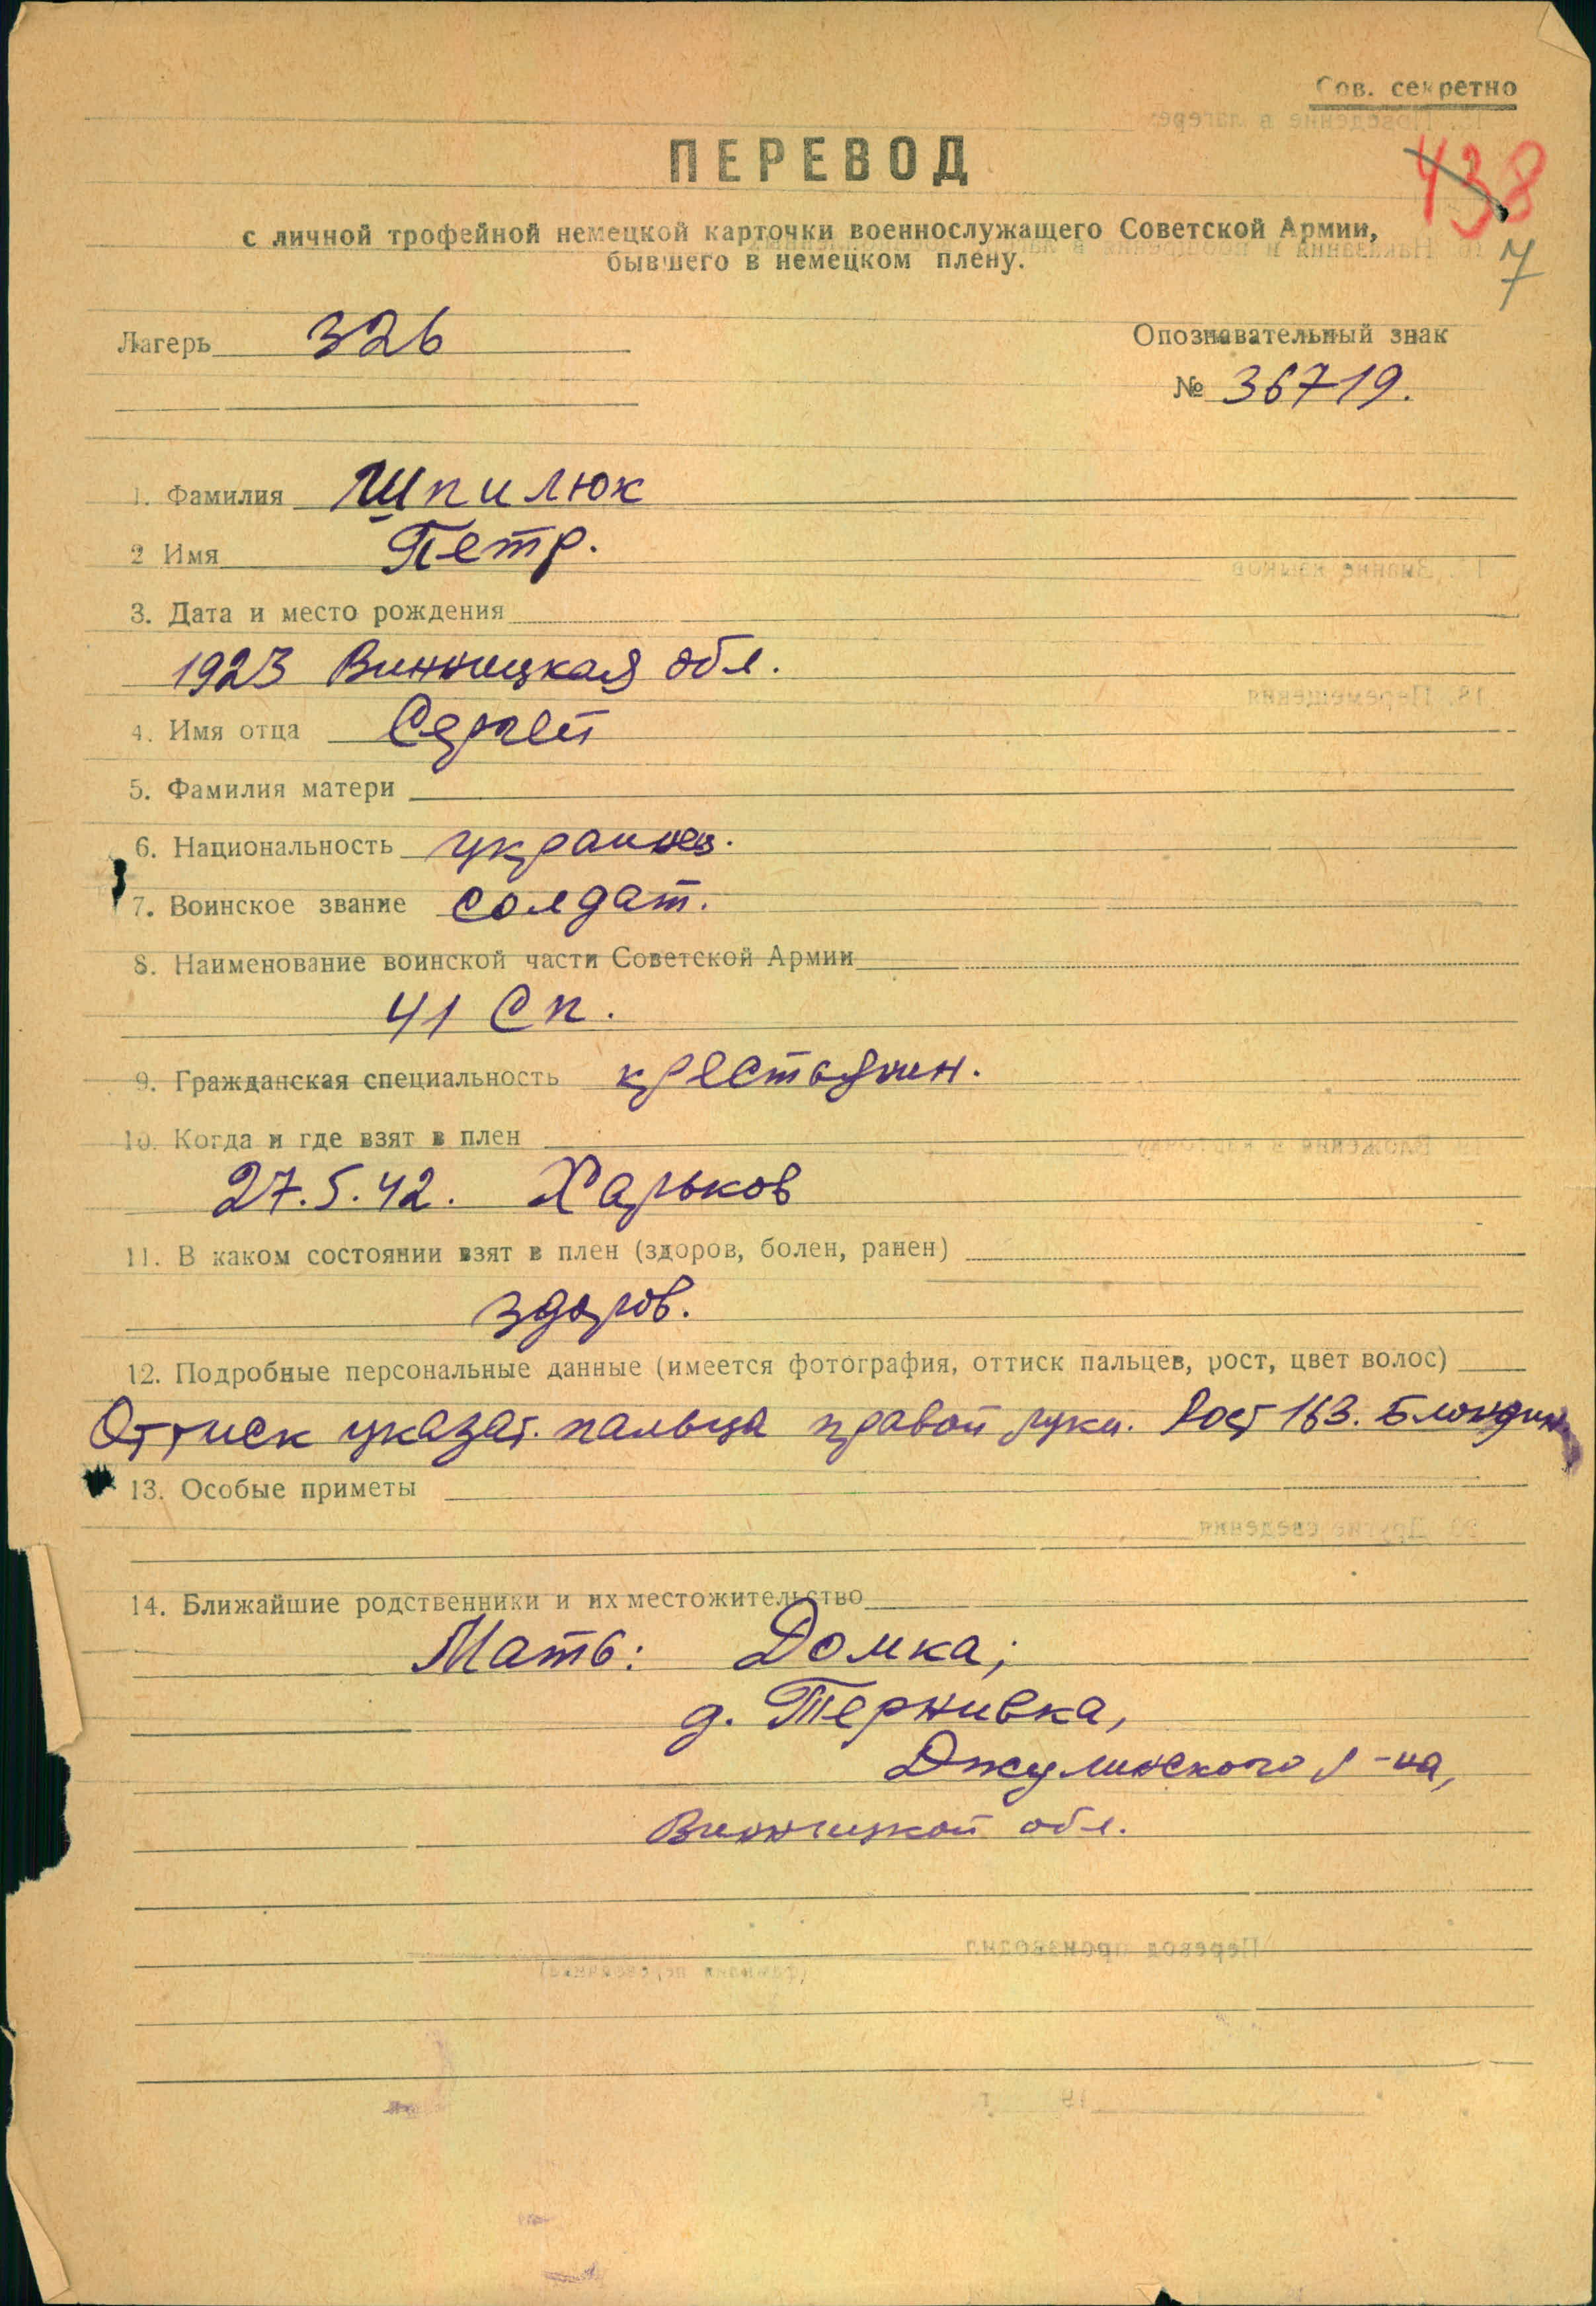 Сов. секретно
ПЕРЕВОД
438
с личной трофейной немецкой карточки военнослужащего Советской Армии,
бывшего в немецком плену.
7
Лагерь 326
Опознавательный знак
№ 36719.
1. Фамилия Шпилюк
2 Имя Петр.
3. Дата и место рождения
1923 Винницкая обл.
4. Имя отца Сергей
5. Фамилия матери
6. Национальность украинец.
7. Воинское звание солдат.
8. Наименование воинской части Советской Армии
41 Сп.
9. Гражданская специальность крестьянин.
10. Когда и где взят в плен
27.5.42. Харьков
11. В каком состоянии взят в плен (здоров, болен, ранен)
здоров.
12. Подробные персональные данные (имеется фотография, оттиск пальцев, рост, цвет волос)
Оттиск указат. пальца правой руки. Рост 163. Блондин.
13. Особые приметы
14. Ближайшие родственники и их местожительство
Мать: Домка;
д. Тернивка,
Джулинского р-на,
Винницкой обл.